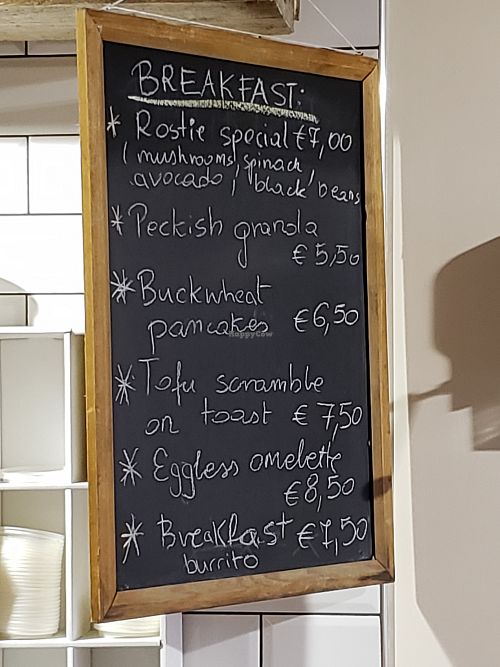 BREAKFAST:
* Rostie special €7,00
(mushrooms/spinach/
avocado/black/beans
* Peckish granola
€5,50
* Buckwheat
pancakes €6,50
HappyCow
* Tofu scramble
on toast €7,50
* Eggless omelette
€8,50
* Breakfast €7,50
burrito